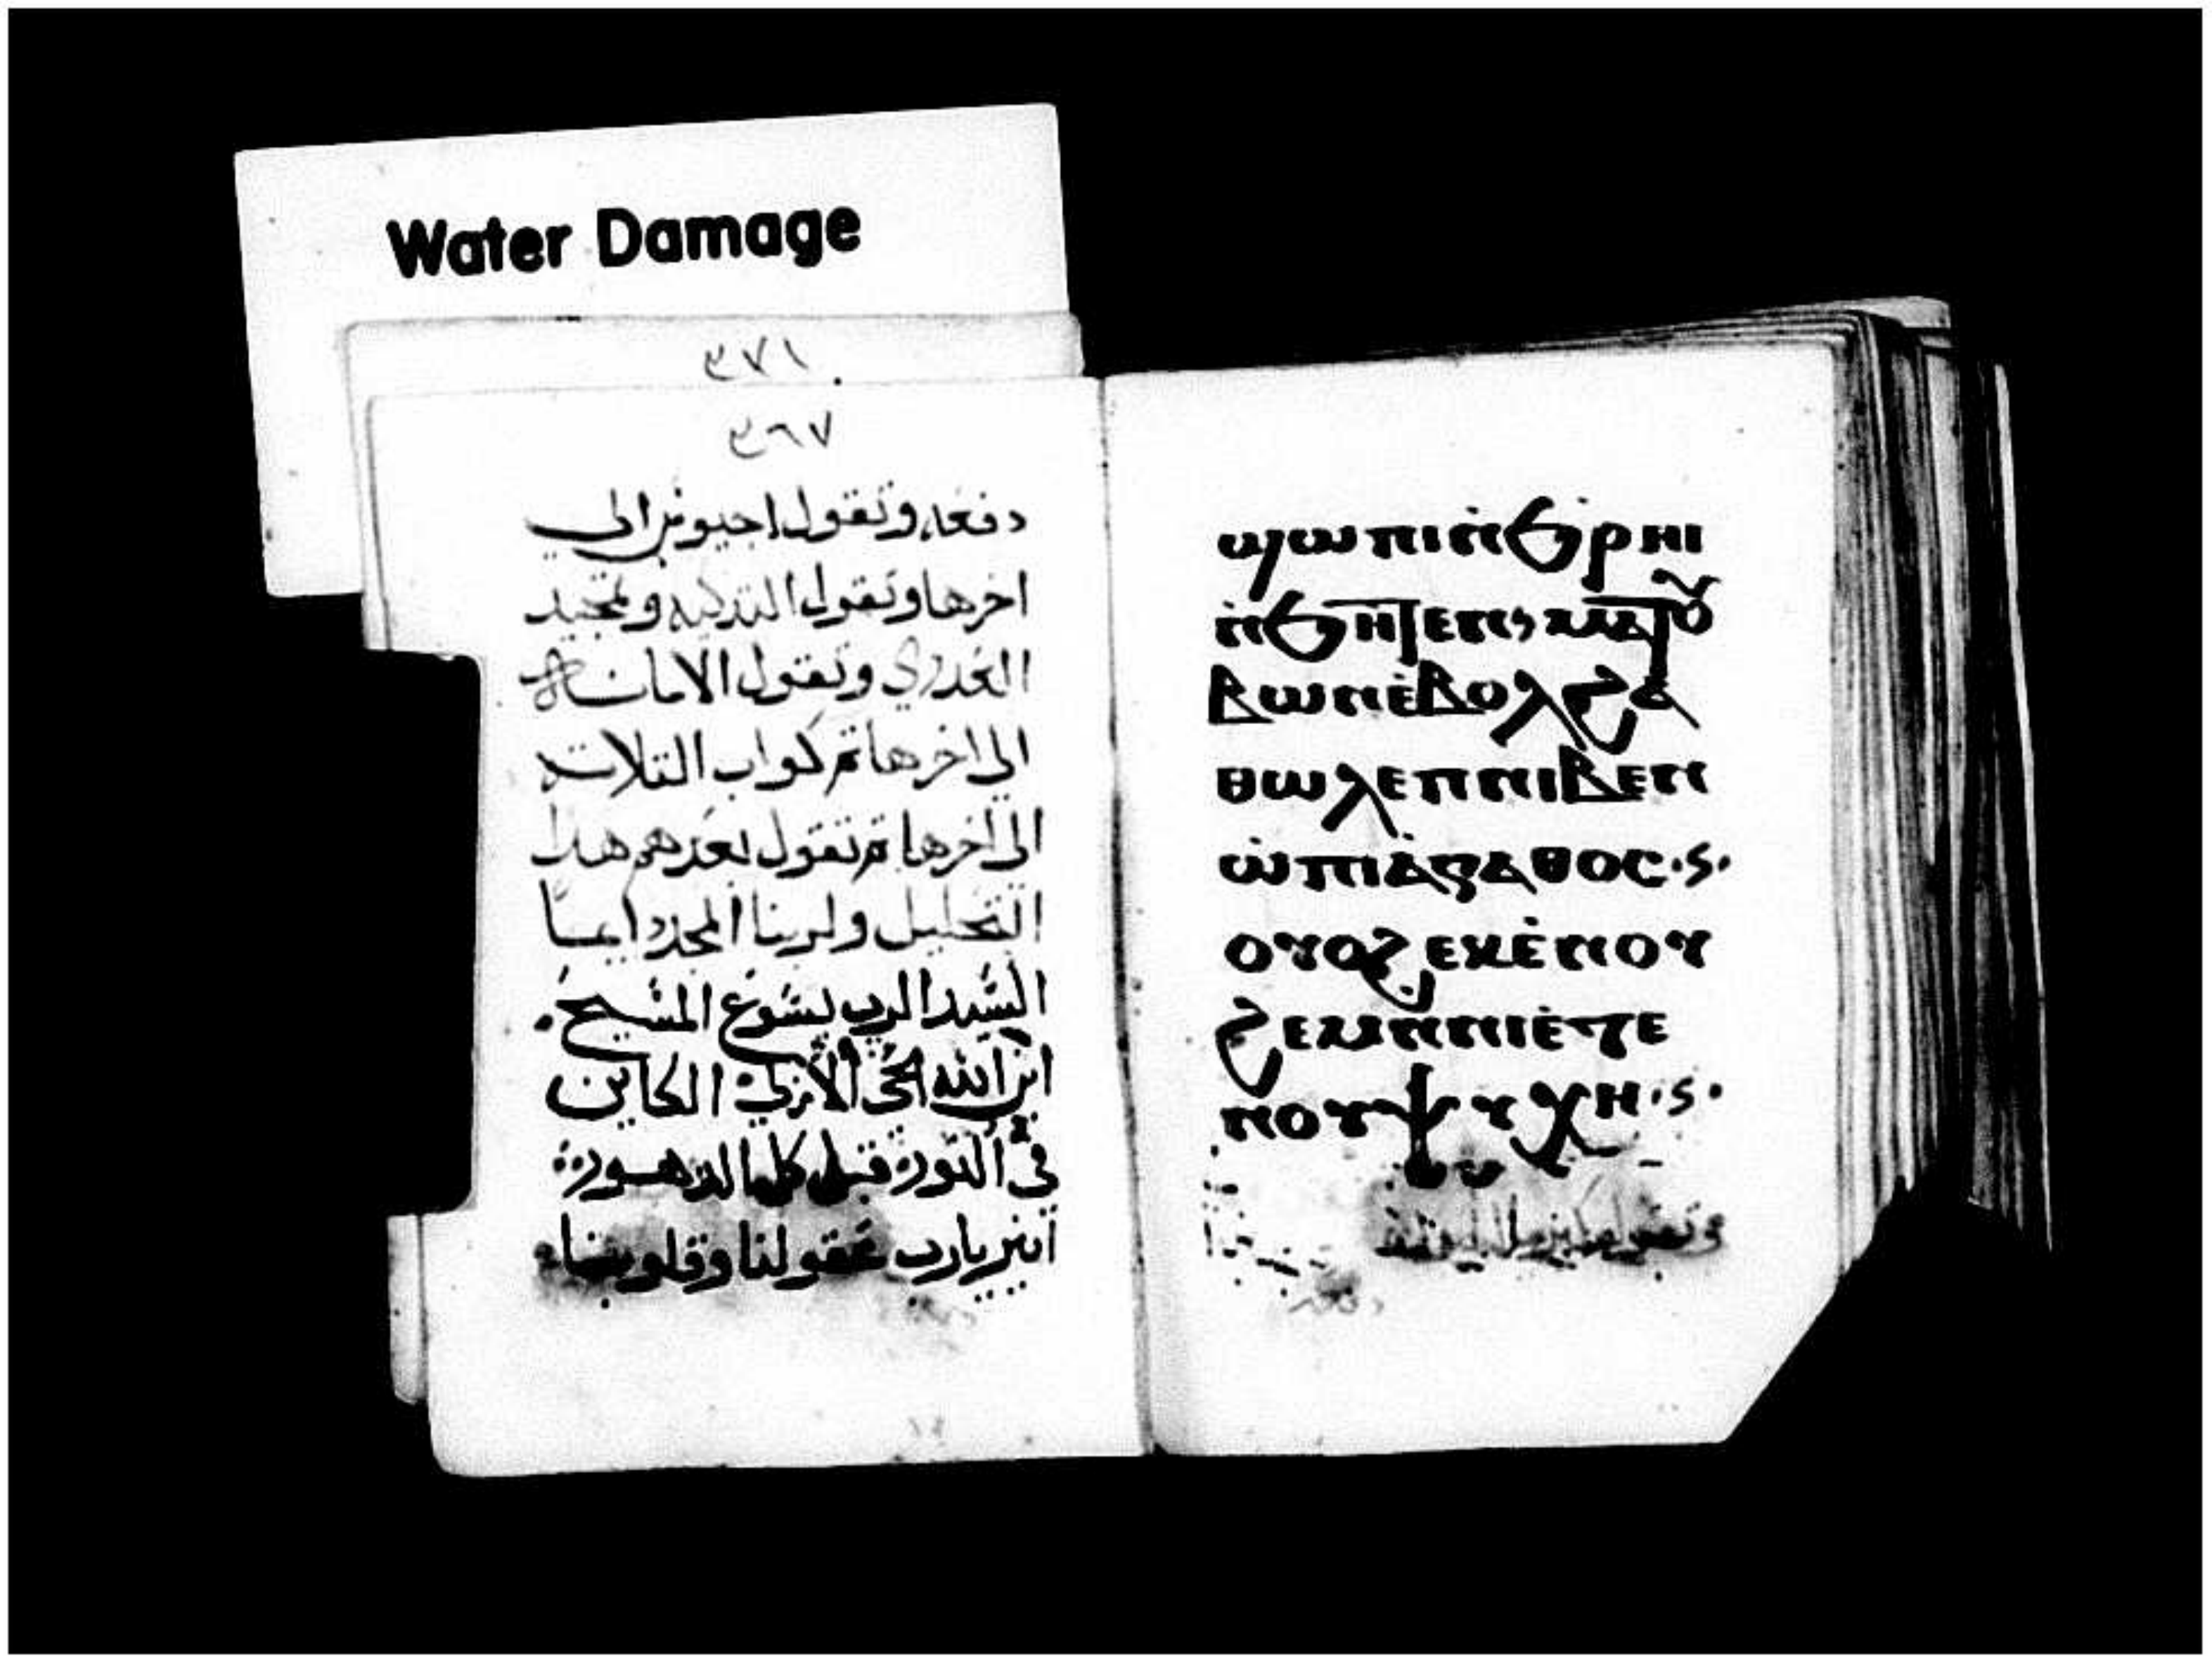 Water Damage
٤٧١
٤٦٧
دفعه وتقول اجيوس الي
اخرها وتقول التدكيه وتمجيد
العدري وتقول الامانه
الي اخرها تم كواب التلاته
الي اخرها تم تقول بعدهم هدا
التحليل ولربنا المجد دايمًا
السيد الرب يسوع المسيح .
ابن الله الحي الأزلي الكاين
في النور قبل كل الدهور
انير يارب عقولنا وقلوبنا
ϣⲱⲡⲓⲛ̀ϧⲣⲏⲓ
ⲛ̀ϧⲏⲧⲉⲛ ⲙⲁⲧⲟⲩ
ⲃⲱⲛⲉ̀ⲃⲟⲗϩⲁ
ⲑⲱⲗⲉⲡⲛⲓⲃⲉⲛ
ⲱ̀ⲡⲓⲁ̀ⲅⲁⲑⲟⲥ·ⲋ·
ⲟⲩⲟϩ ⲉⲕⲉ̀ⲛⲟⲩ
ϩⲉⲙⲛ̀ⲛⲓⲉ̀ⲧⲉ
ⲛⲟⲩⲯⲩⲭⲏ·ⲋ·
وتقول
دفعه